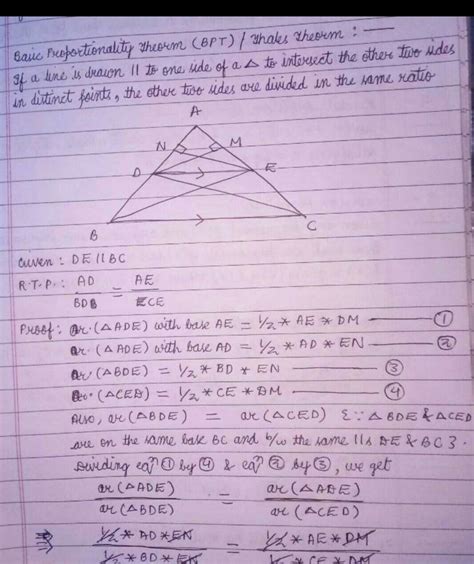 Basic Proportionality Theorem (BPT) / Thales Theorem : —
If a line is drawn || to one side of a △ to intersect the other two sides
in distinct points, the other two sides are divided in the same ratio
A
N M
D E
B C
Given : DE || BC
R.T.P. : AD/BD = AE/CE
Proof : ar. (△ADE) with base AE = 1/2 * AE * DM — ①
ar. (△ADE) with base AD = 1/2 * AD * EN — ②
ar (△BDE) = 1/2 * BD * EN — ③
ar. (△CED) = 1/2 * CE * DM — ④
Also, ar (△BDE) = ar (△CED) {∵ △BDE & △CED
are on the same base BC and b/w the same ||s DE & BC}.
Dividing eqn ① by ④ & eqn ② by ③, we get
ar (△ADE)/ar (△BDE) = ar (△ADE)/ar (△CED)
⇒ 1/2 * AD * EN / 1/2 * BD * EN = 1/2 * AE * DM / 1/2 * CE * DM